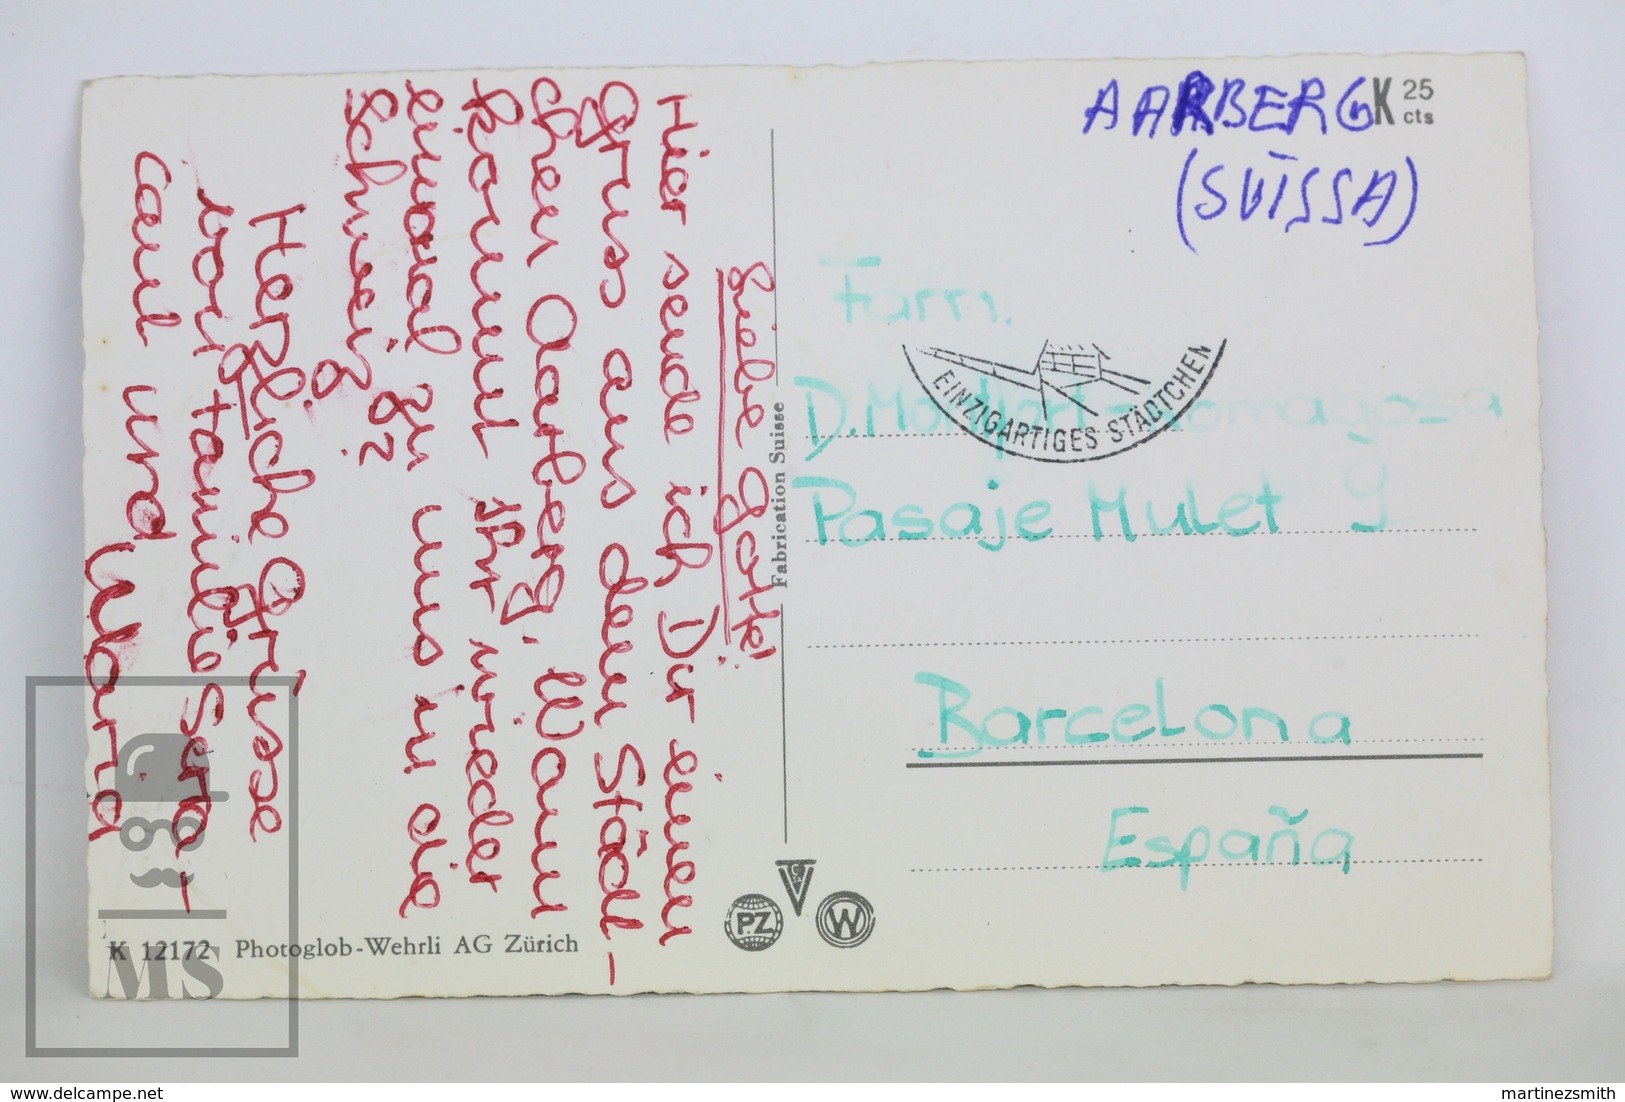 Liebe Gotte!
Hier sende ich Dir einen
Gruss aus dem Städt-
chen Aarberg. Wann
kommt Ihr wieder
einmal zu uns in die
Schweiz?
Herzliche Grüsse
von Familie Sera-
und
Maria
K 12172 Photoglob-Wehrli AG Zürich
Fabrication Suisse
PZ
W
AARBERG
(SUÏSSA)
K 25
cts
EINZIGARTIGES STÄDTCHEN
Fam.
D. Montfort-Romagosa
Pasaje Mulet 9
Barcelona
España
MS
delcampe.net
martinezsmith